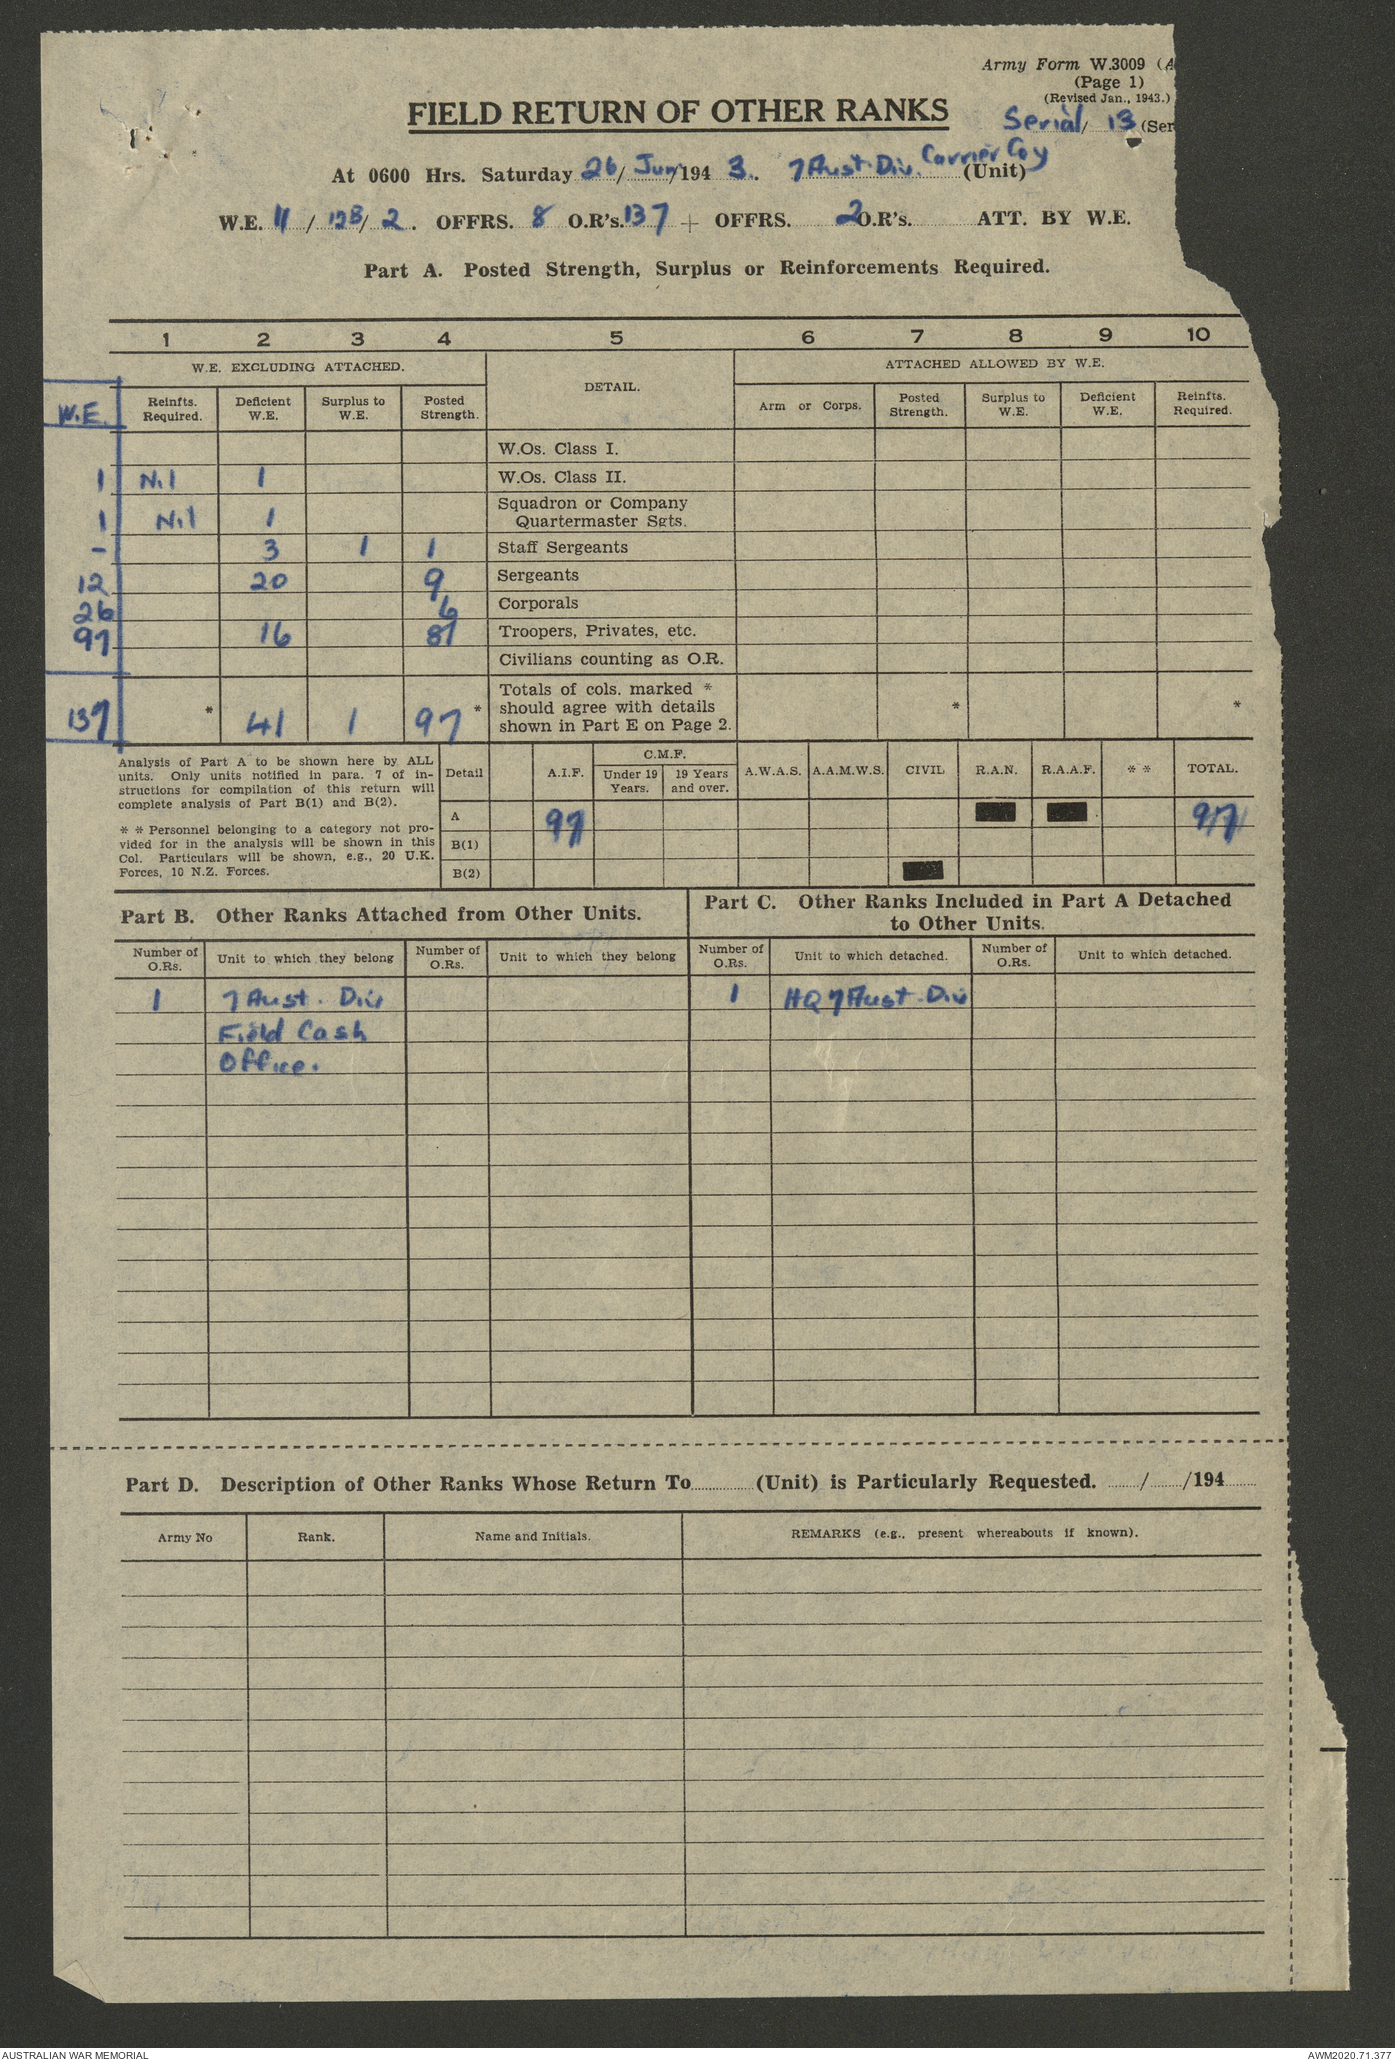 Army Form W.3009 (A
(Page 1)
(Revised Jan., 1943.)
FIELD RETURN OF OTHER RANKS
Serial/ 13 (Ser
At 0600 Hrs. Saturday 26/Jun/1943. 7 Aust. Div. Carrier Coy (Unit)
W.E. 11 / 12B / 2. OFFRS. 8 O.R's. 137 + OFFRS. 2 O.R's. ATT. BY W.E.
Part A. Posted Strength, Surplus or Reinforcements Required.
1 2 3 4 5 6 7 8 9 10
W.E. EXCLUDING ATTACHED. DETAIL. ATTACHED ALLOWED BY W.E.
W.E. Reinfts. Required. Deficient W.E. Surplus to W.E. Posted Strength. Arm or Corps. Posted Strength. Surplus to W.E. Deficient W.E. Reinfts. Required.
W.Os. Class I.
1 Nil 1 W.Os. Class II.
1 Nil 1 Squadron or Company Quartermaster Sgts.
- 3 1 1 Staff Sergeants
12 20 9 Sergeants
26 6 Corporals
97 16 81 Troopers, Privates, etc.
Civilians counting as O.R.
137 * 41 1 97 * Totals of cols. marked * should agree with details shown in Part E on Page 2. * *
Analysis of Part A to be shown here by ALL
units. Only units notified in para. 7 of in-
structions for compilation of this return will
complete analysis of Part B(1) and B(2).
* * Personnel belonging to a category not pro-
vided for in the analysis will be shown in this
Col. Particulars will be shown, e.g., 20 U.K.
Forces, 10 N.Z. Forces.
Detail A.I.F. C.M.F. Under 19 Years. 19 Years and over. A.W.A.S. A.A.M.W.S. CIVIL R.A.N. R.A.A.F. * * TOTAL.
A 97 97
B(1)
B(2)
Part B. Other Ranks Attached from Other Units.
Part C. Other Ranks Included in Part A Detached
to Other Units.
Number of O.Rs. Unit to which they belong Number of O.Rs. Unit to which they belong Number of O.Rs. Unit to which detached. Number of O.Rs. Unit to which detached.
1 7 Aust. Div 1 HQ 7 Aust. Div
Field Cash
Office.
Part D. Description of Other Ranks Whose Return To............(Unit) is Particularly Requested. ......../......../194........
Army No Rank. Name and Initials. REMARKS (e.g., present whereabouts if known).
AUSTRALIAN WAR MEMORIAL AWM2020.71.377